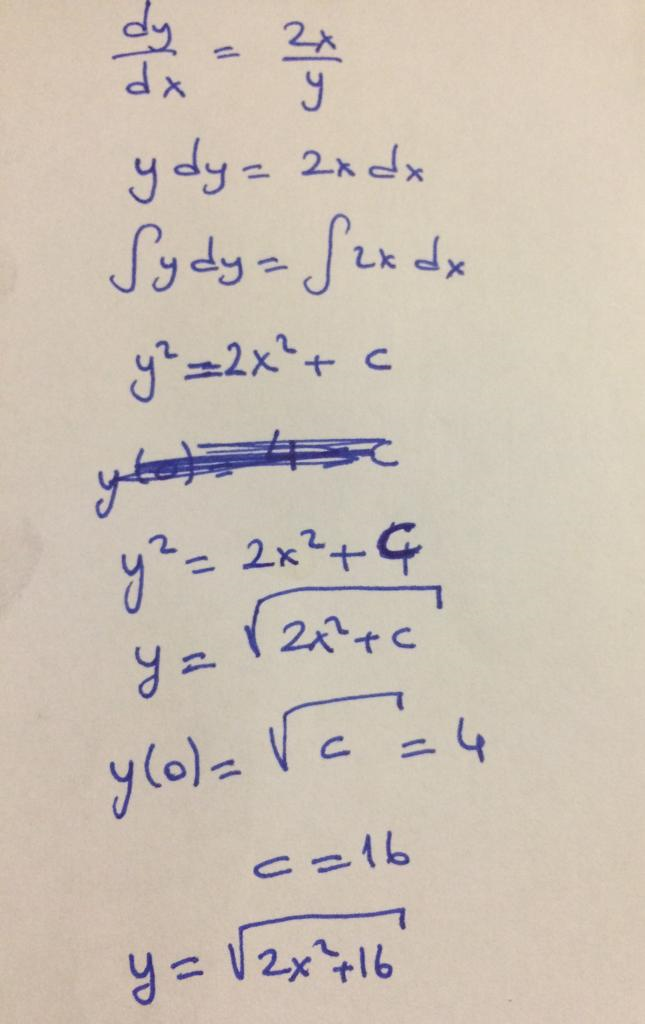 dy/dx = 2x/y
y dy = 2x dx
∫y dy = ∫2x dx
y² = 2x² + c
y² = 2x² + C
y = √(2x² + c)
y(0) = √c = 4
c = 16
y = √(2x² + 16)